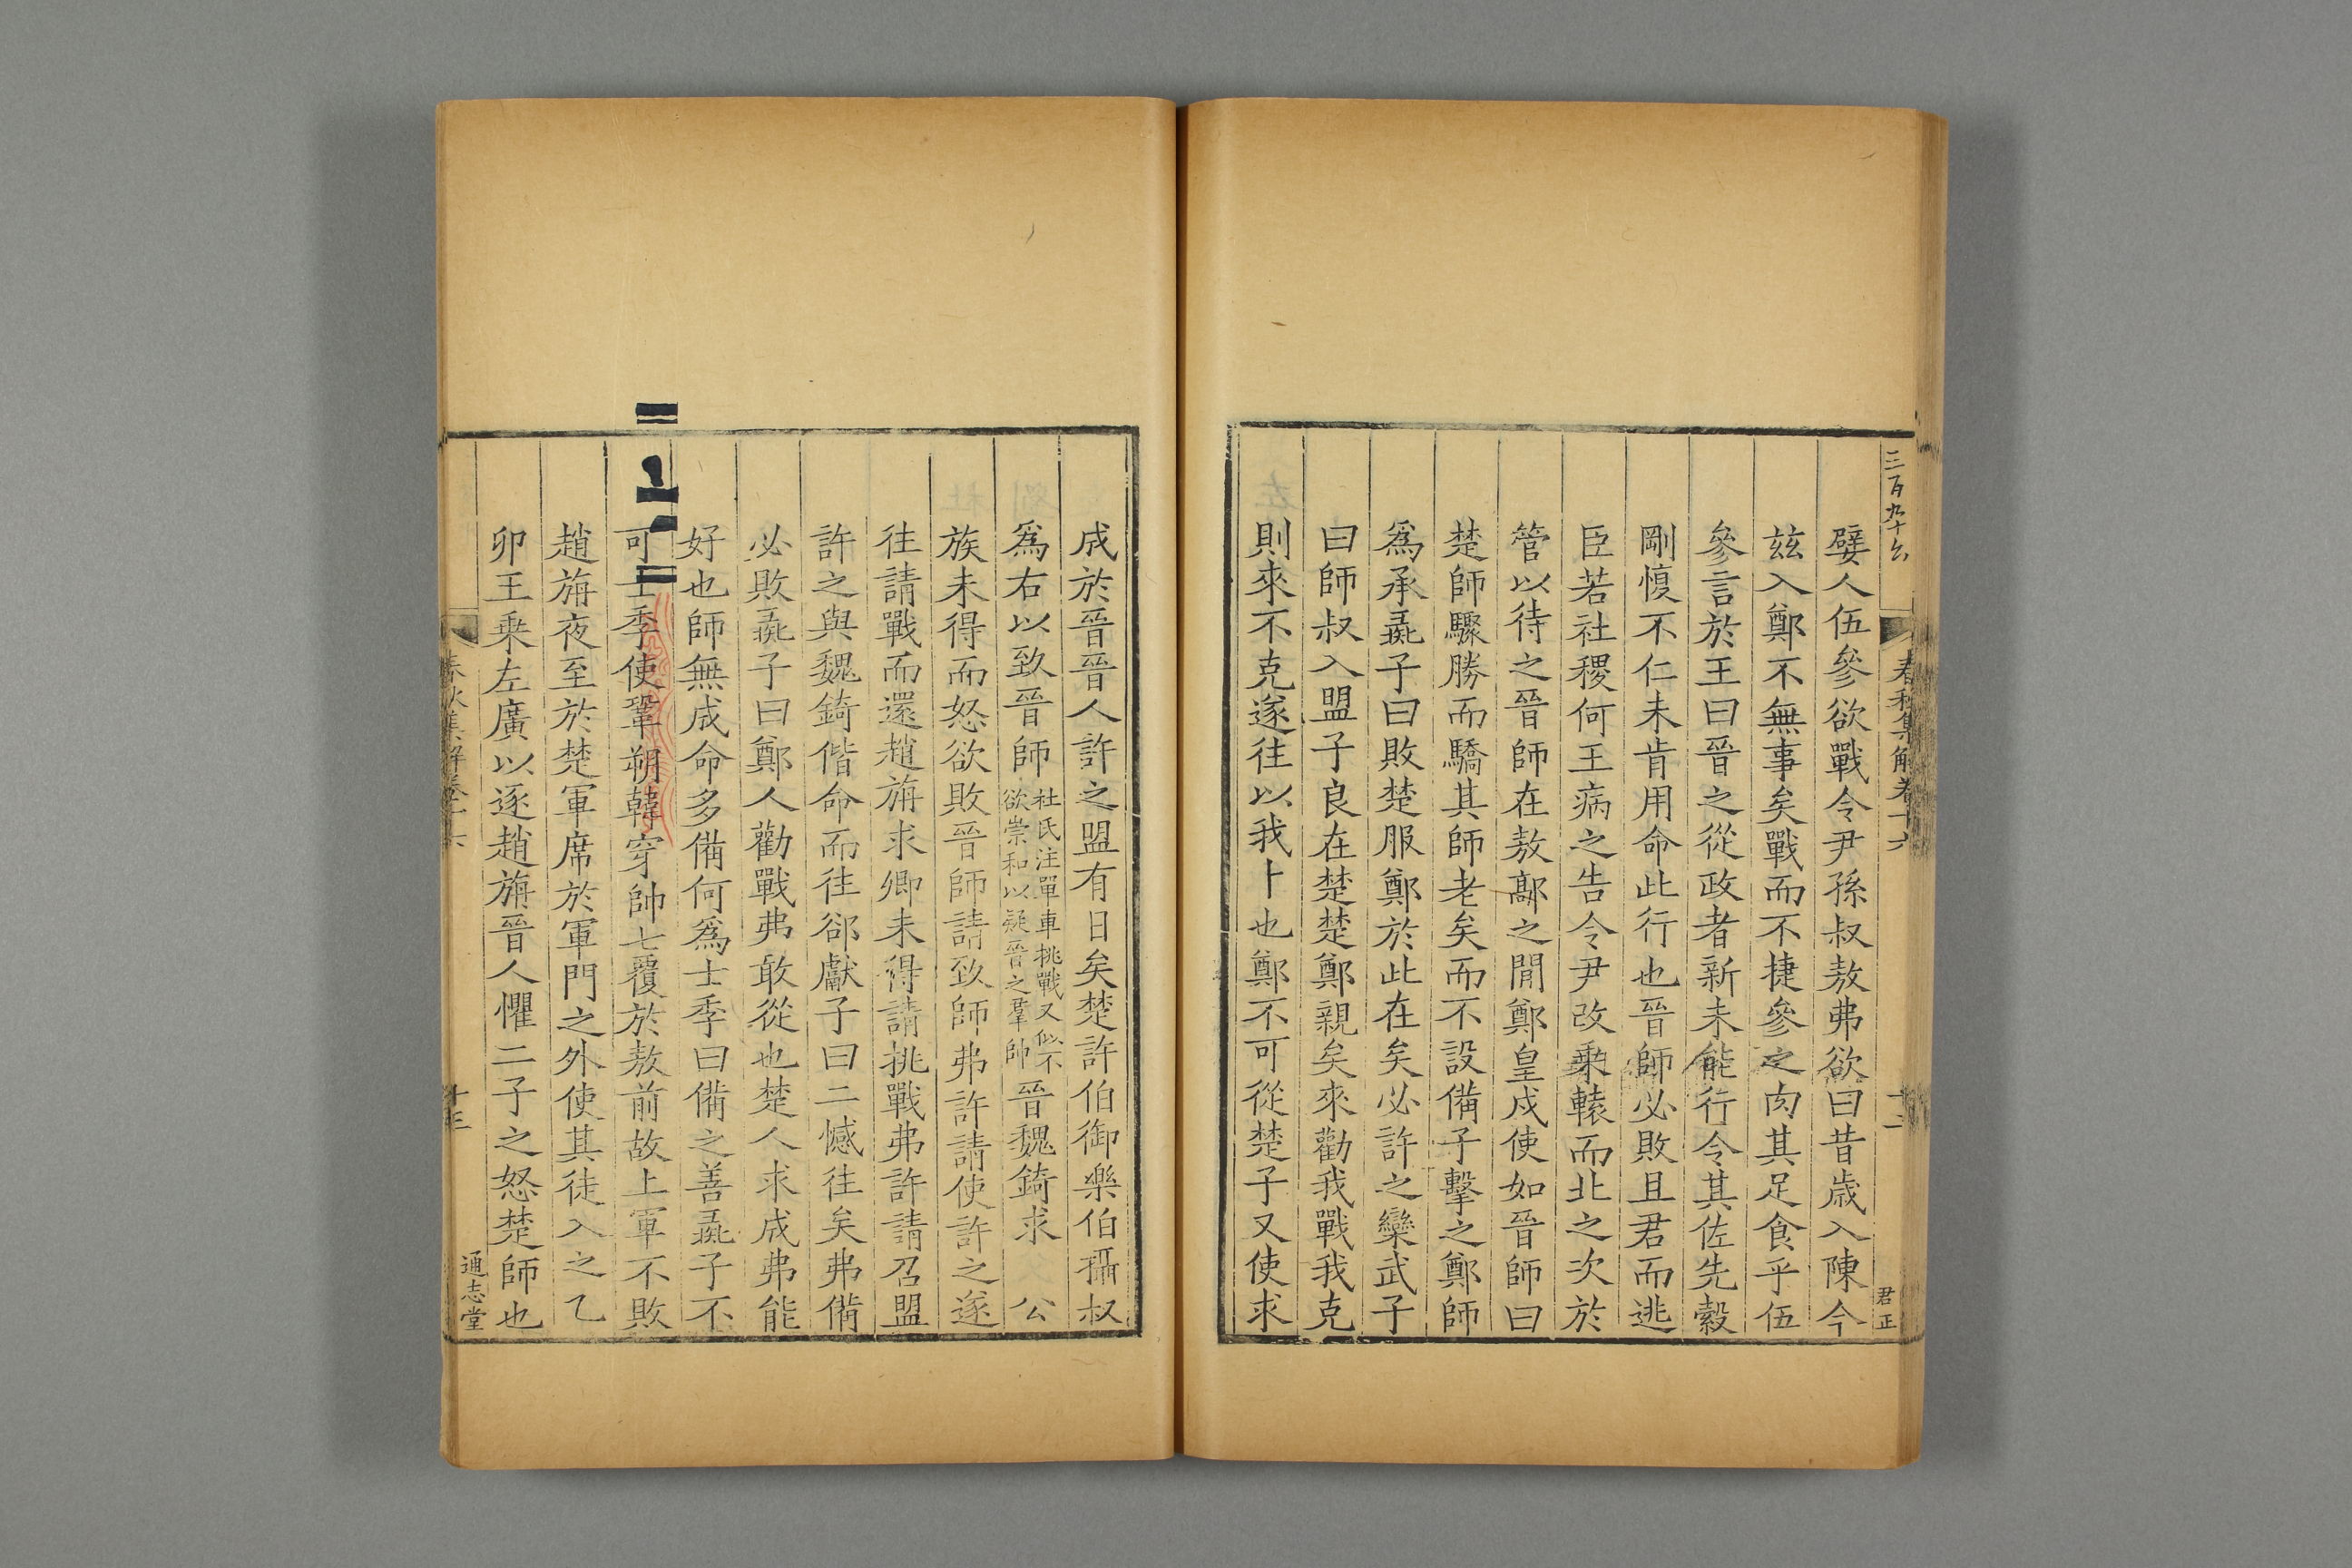 三百九十六
春秋集解卷十六
十二
君正
嬖人伍參欲戰令尹孫叔敖弗欲曰昔歲入陳今
茲入鄭不無事矣戰而不捷參之肉其足食乎伍
參言於王曰晉之從政者新未能行令其佐先縠
剛愎不仁未肯用命此行也晉師必敗且君而逃
臣若社稷何王病之告令尹改乗轅而北之次於
管以待之晉師在敖鄗之閒鄭皇戍使如晉師曰
楚師驟勝而驕其師老矣而不設備子擊之鄭師
爲承彘子曰敗楚服鄭於此在矣必許之欒武子
曰師叔入盟子良在楚楚鄭親矣來勸我戰我克
則來不克遂往以我卜也鄭不可從楚子又使求
成於晉晉人許之盟有日矣楚許伯御樂伯攝叔
爲右以致晉師
杜氏注單車挑戰又似不
欲崇和以疑晉之羣帥
晉魏錡求公
族未得而怒欲敗晉師請致師弗許請使許之遂
往請戰而還趙旃求卿未得請挑戰弗許請召盟
許之與魏錡偕命而往郤獻子曰二憾往矣弗備
必敗彘子曰鄭人勸戰弗敢從也楚人求成弗能
好也師無成命多備何爲士季曰備之善彘子不
可士季使鞏朔韓穿帥七覆於敖前故上軍不敗
趙旃夜至於楚軍席於軍門之外使其徒入之乙
卯王乗左廣以逐趙旃晉人懼二子之怒楚師也
春秋集解卷十六
十三
通志堂